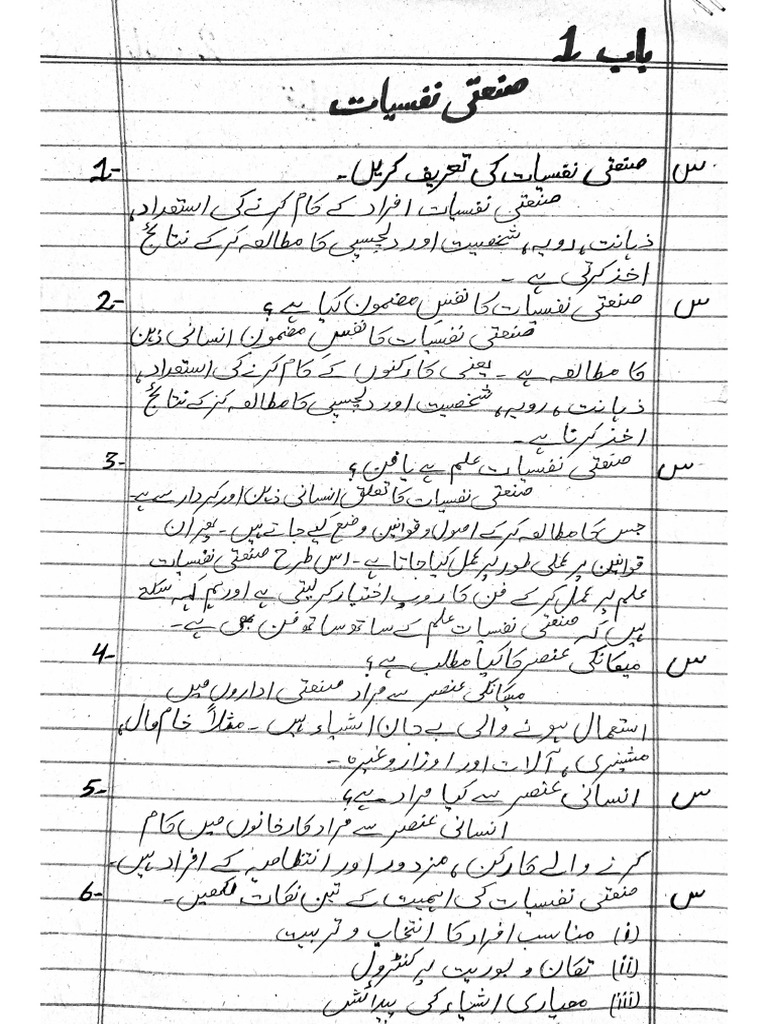 باب 1
صنعتی نفسیات
س 1- صنعتی نفسیات کی تعریف کریں۔
صنعتی نفسیات افراد کے کام کرنے کی استعداد،
ذہانت، رویہ، شخصیت اور دلچسپی کا مطالعہ کر کے نتائج
اخذ کرتی ہے۔
س 2- صنعتی نفسیات کا نفسِ مضمون کیا ہے؟
صنعتی نفسیات کا نفسِ مضمون انسانی ذہن
کا مطالعہ ہے۔ یعنی کارکنوں کے کام کرنے کی استعداد،
ذہانت، رویہ، شخصیت اور دلچسپی کا مطالعہ کر کے نتائج
اخذ کرتا ہے۔
س 3- صنعتی نفسیات علم ہے یا فن؟
صنعتی نفسیات کا تعلق انسانی ذہن اور کردار سے ہے۔
جس کا مطالعہ کر کے اصول و قوانین وضع کیے جاتے ہیں۔ پھر ان
قوانین پر عملی طور پر عمل کیا جاتا ہے۔ اس طرح صنعتی نفسیات
علم پر عمل کر کے فن کا روپ اختیار کر لیتی ہے اور ہم کہہ سکتے
ہیں کہ صنعتی نفسیات علم کے ساتھ ساتھ فن بھی ہے۔
س 4- میکانکی عنصر کا کیا مطلب ہے؟
میکانکی عنصر سے مراد صنعتی اداروں میں
استعمال ہونے والی بے جان اشیاء ہیں۔ مثلاً خام مال،
مشینری، آلات اور اوزار وغیرہ۔
س 5- انسانی عنصر سے کیا مراد ہے؟
انسانی عنصر سے مراد کارخانوں میں کام
کرنے والے کارکن، مزدور اور انتظامیہ کے افراد ہیں۔
س 6- صنعتی نفسیات کی اہمیت کے تین نکات لکھیں۔
(i) مناسب افراد کا انتخاب و تربیت
(ii) تھکان و بوریت پر کنٹرول
(iii) معیاری اشیاء کی پیدائش